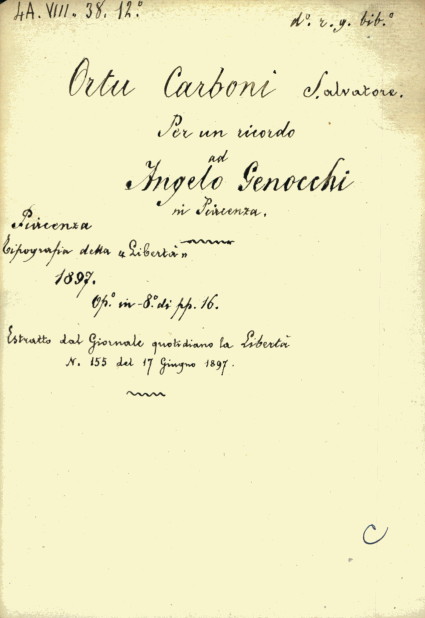 4A. VIII. 38. 12.° d°. r. g. bib.°
Ortu Carboni Salvatore.
Per un ricordo
ad
Angelo Genocchi
in Piacenza.
Piacenza
Tipografia della "Libertà"
1897.
Op.° in-8.° di pp. 16.
Estratto dal Giornale quotidiano la Libertà
N. 155 del 17 Giugno 1897.
C